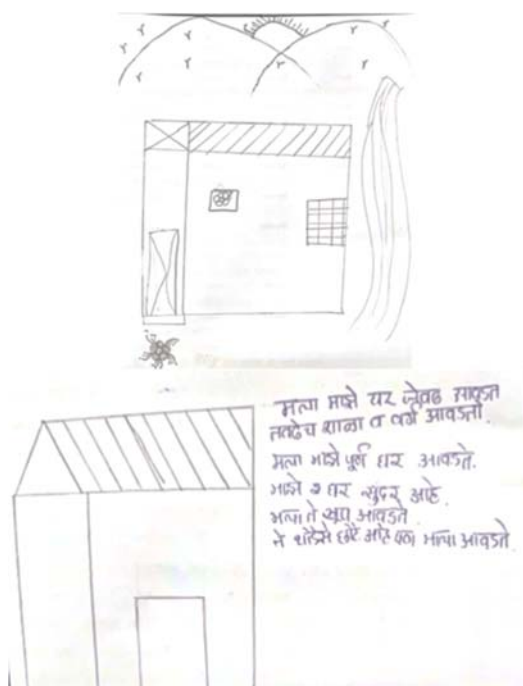 मला माझे घर जेवढ आवडत
तेवढेच शाळा व वर्ग आवडतो.
मला माझे पूर्ण घर आवडते.
माझे घर सुंदर आहे.
मला ते खूप आवडते
ते थोडेसे छोटे आहे पण मला आवडते.